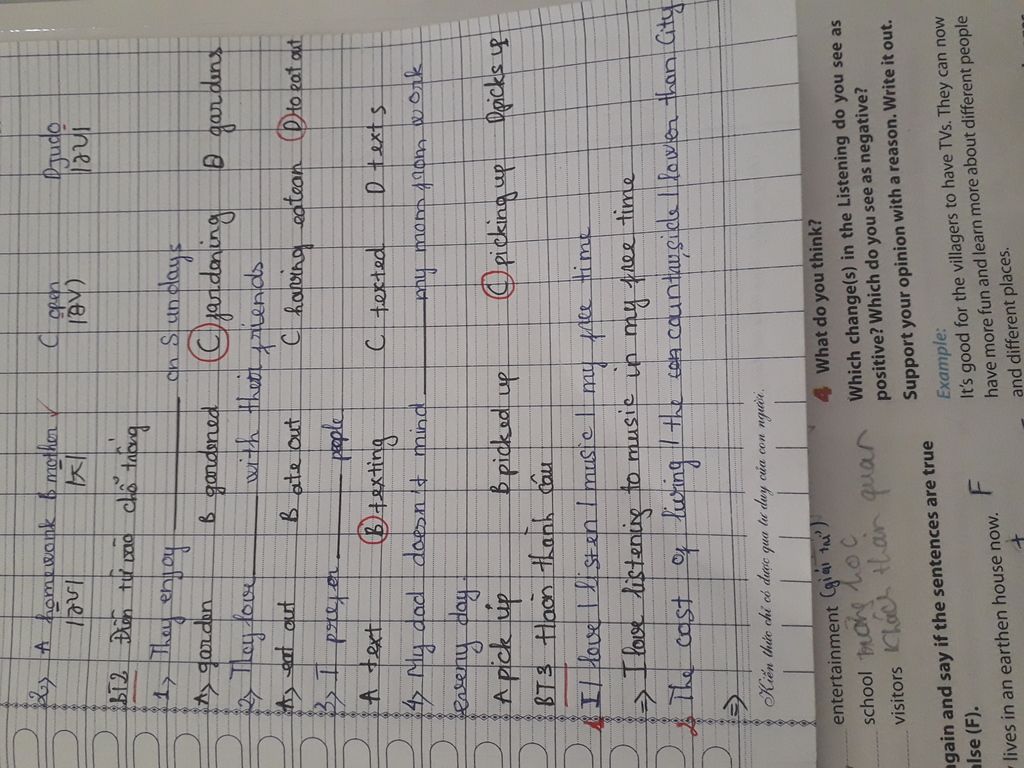 2> A homework B mother ✓ C open D judo
/əʊ/ /ʌ/ /əʊ/ /əʊ/
BT2 Điền từ vào chỗ trống
1> They enjoy ______ on Sundays
A> garden B gardened C gardening D gardens
2> They love ______ with their friends
A> eat out B ate out C having eatean D to eat out
3> I prefer ______ people
A text B texting C texted D texts
4> My dad doesn't mind ______ my mom from work
every day.
A pick up B picked up C picking up D picks up
BT3 Hoàn thành câu
1> I / love / listen / music / my free time
=> I love listening to music in my free time
2> The cost of living / the countryside / lower than City
=>
Kiến thức chỉ có được qua tư duy của con người.
entertainment (giải trí)
school trường học
visitors khách thăm quan
again and say if the sentences are true
alse (F).
lives in an earthen house now. F
4 What do you think?
Which change(s) in the Listening do you see as
positive? Which do you see as negative?
Support your opinion with a reason. Write it out.
Example:
It's good for the villagers to have TVs. They can now
have more fun and learn more about different people
and different places.